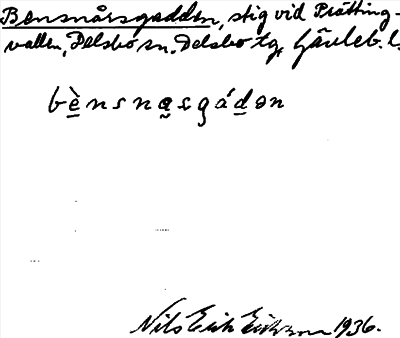 Bensnårsgadden, stig vid Prötting-
vallen, Delsbo sn. Delsbo tg. Gävleb. l.
bènsnaʂgádən
Nils Erik Eriksson 1936.